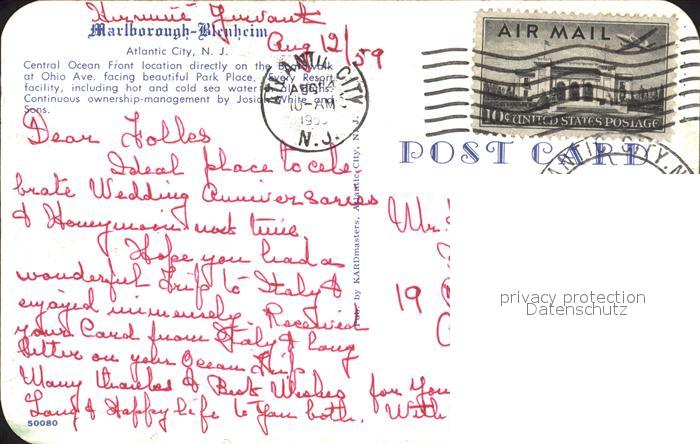 Marlborough-Blenheim
Atlantic City, N. J.
Aug 12/59
Central Ocean Front location directly on the Boardwalk
at Ohio Ave. facing beautiful Park Place. Every Resort
facility, including hot and cold sea water
Continuous ownership-management by Josiah White and
Sons.
ATLANTIC CITY
AUG
10-AM
N. J.
AIR MAIL
10¢ UNITED STATES POSTAGE
POST CARD
Dear Folks
Ideal place to cele
brate Wedding Anniversaries
& Honeymoon next time.
Hope you had a
wonderful Trip to Italy &
enjoyed immensely. Received
your Card from Italy & Long
letter on your Ocean Trip
Many thanks & Best Wishes for You
Long & Happy life to You both. With
50080
by KARDmasters, Atlantic City, N. J.
Mr.
19
privacy protection
Datenschutz